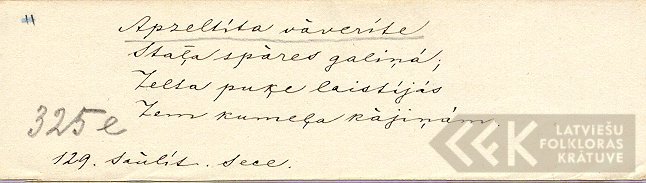 11
Apzeltita vāverīte
Staļļa spāres galiņá;
Zelta puķe laistijás
Zem kumeļa kājiņám.
325e
129. saulīt. sece.
LATVIEŠU
FOLKLORAS
KRĀTUVE